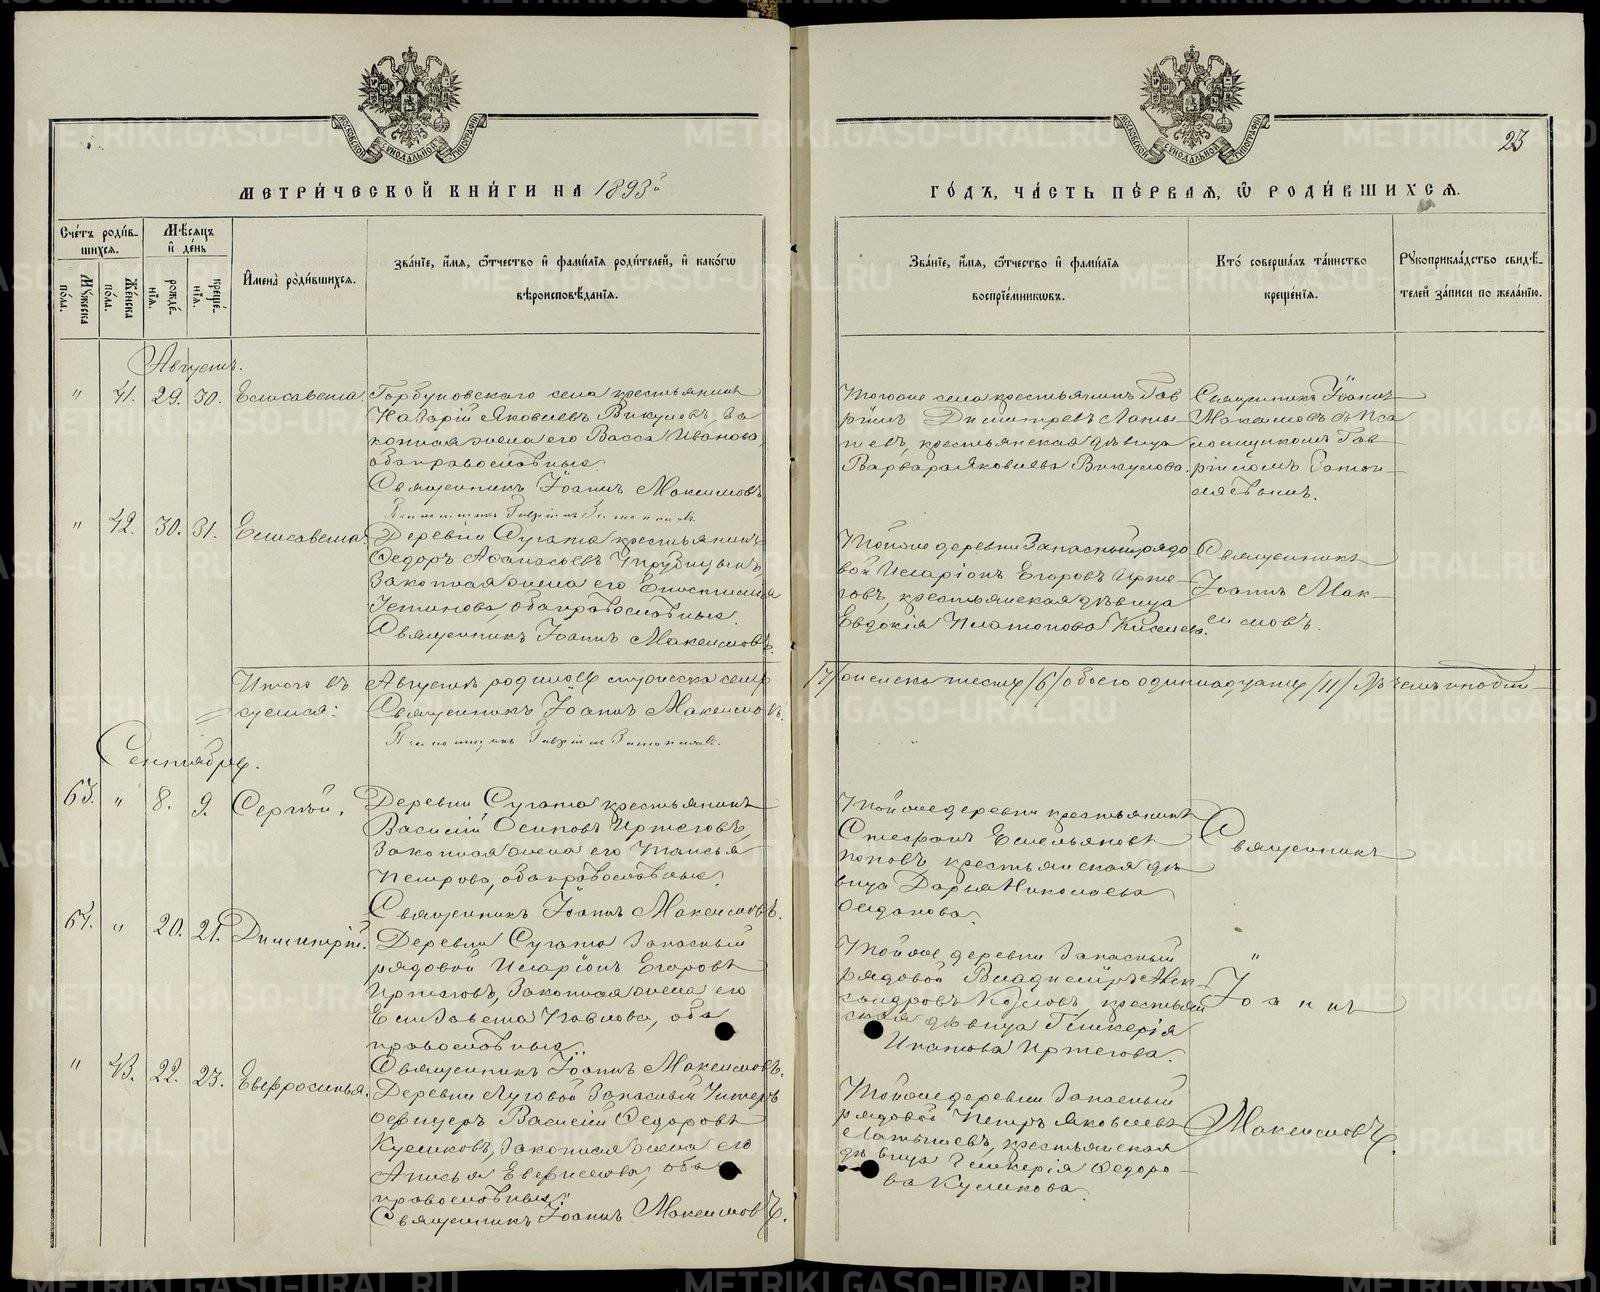 МОСКОВСКОЙ СУНОДАЛЬНОЙ ТИПОГРАФІИ
МЕТРИ́ЧЕСКОЙ КНИ́ГИ НА 1893й
Сче́тъ роди́вшихсѧ.
Мѣ́сѧцъ и҆ де́нь
Мꙋ́жеска по́ла.
Же́нска по́ла.
рожде́нїѧ.
креще́нїѧ.
И҆мена̀ роди́вшихсѧ.
Зва́нїе, и҆́мѧ, ѻ҆́тчество и҆ фами́лїѧ роди́телей, и҆ како́гѡ
вѣроисповѣ́данїѧ.
Августъ.
" 41. 29. 30. Елисавета.
Горбуновскаго села крестьянинъ
Назарій Яковлевъ Викуловъ, за
конная жена его Васса Иванова,
оба православные.
Священникъ Іоаннъ Максимовъ
Псаломщикъ Гавріилъ
" 42. 30. 31. Елисавета.
Деревни Сугата крестьянинъ
Ѳедоръ Аѳанасьевъ
законная жена его
Устинова, оба православные.
Священникъ Іоаннъ Максимовъ.
Итого въ Августѣ родилось мужеска семь
суемся:
Священникъ Іоаннъ Максимовъ.
Псаломщикъ Гавріилъ
Сентябрь.
63. " 8. 9. Сергѣй.
Деревни Сугата крестьянинъ
Василій Осиповъ Иртеговъ,
законная жена его Таисья
Петрова, оба православные.
Священникъ Іоаннъ Максимовъ.
64. " 20. 21. Димитрій.
Деревни Сугата запасный
рядовой Иларіонъ Егоровъ
Иртеговъ, законная жена его
Елизавета Павлова, оба
православные.
Священникъ Іоаннъ Максимовъ.
" 43. 22. 23. Евфросинья.
Деревни Луговой запасный Унтеръ
офицеръ Василій Ѳедоровъ
Куликовъ, законная жена его
Анисья, оба
православные.
Священникъ Іоаннъ Максимовъ.
23
МОСКОВСКОЙ СУНОДАЛЬНОЙ ТИПОГРАФІИ
ГО́ДЪ, ЧА́СТЬ ПЕ́РВАѦ, Ѽ РОДИ́ВШИХСѦ.
Зва́нїе, и҆́мѧ, ѻ҆́тчество и҆ фами́лїѧ
воспрїе́мникѡвъ.
Кто̀ соверша́лъ та́инство
креще́нїѧ.
Рꙋкоприкла́дство свидѣ́телей за́писи по жела́нїю.
Тогоже села крестьянинъ Гав
ріилъ Димитріевъ Латы-
шевъ, крестьянская дѣвица
Варвара Яковлева Викулова.
Священникъ Іоаннъ
Максимовъ съ Пса
ломщикомъ Гав-
ріиломъ
Тойже деревни запасный рядо
вой Иларіонъ Егоровъ Ирте-
говъ, крестьянская дѣвица
Евдокія Платонова
Священникъ
Іоаннъ Мак-
симовъ.
/7/ женска шесть /6/ обоего одиннадцать /11/
Тойже деревни крестьянинъ
Стефанъ Емельяновъ
Поповъ крестьянская дѣ
вица Дарья Николаева
Священникъ
Тойже деревни запасный
рядовой Владиміръ Алек-
сандровъ Козловъ, крестьян
ская дѣвица Гликерія
Ипатова Иртегова.
"
Іоаннъ
Тойже деревни запасный
рядовой Петръ Яковлевъ
Латышевъ, крестьянская
дѣвица Гликерія Ѳедоро-
ва Куликова.
Максимовъ.
METRIKI.GASO-URAL.RU